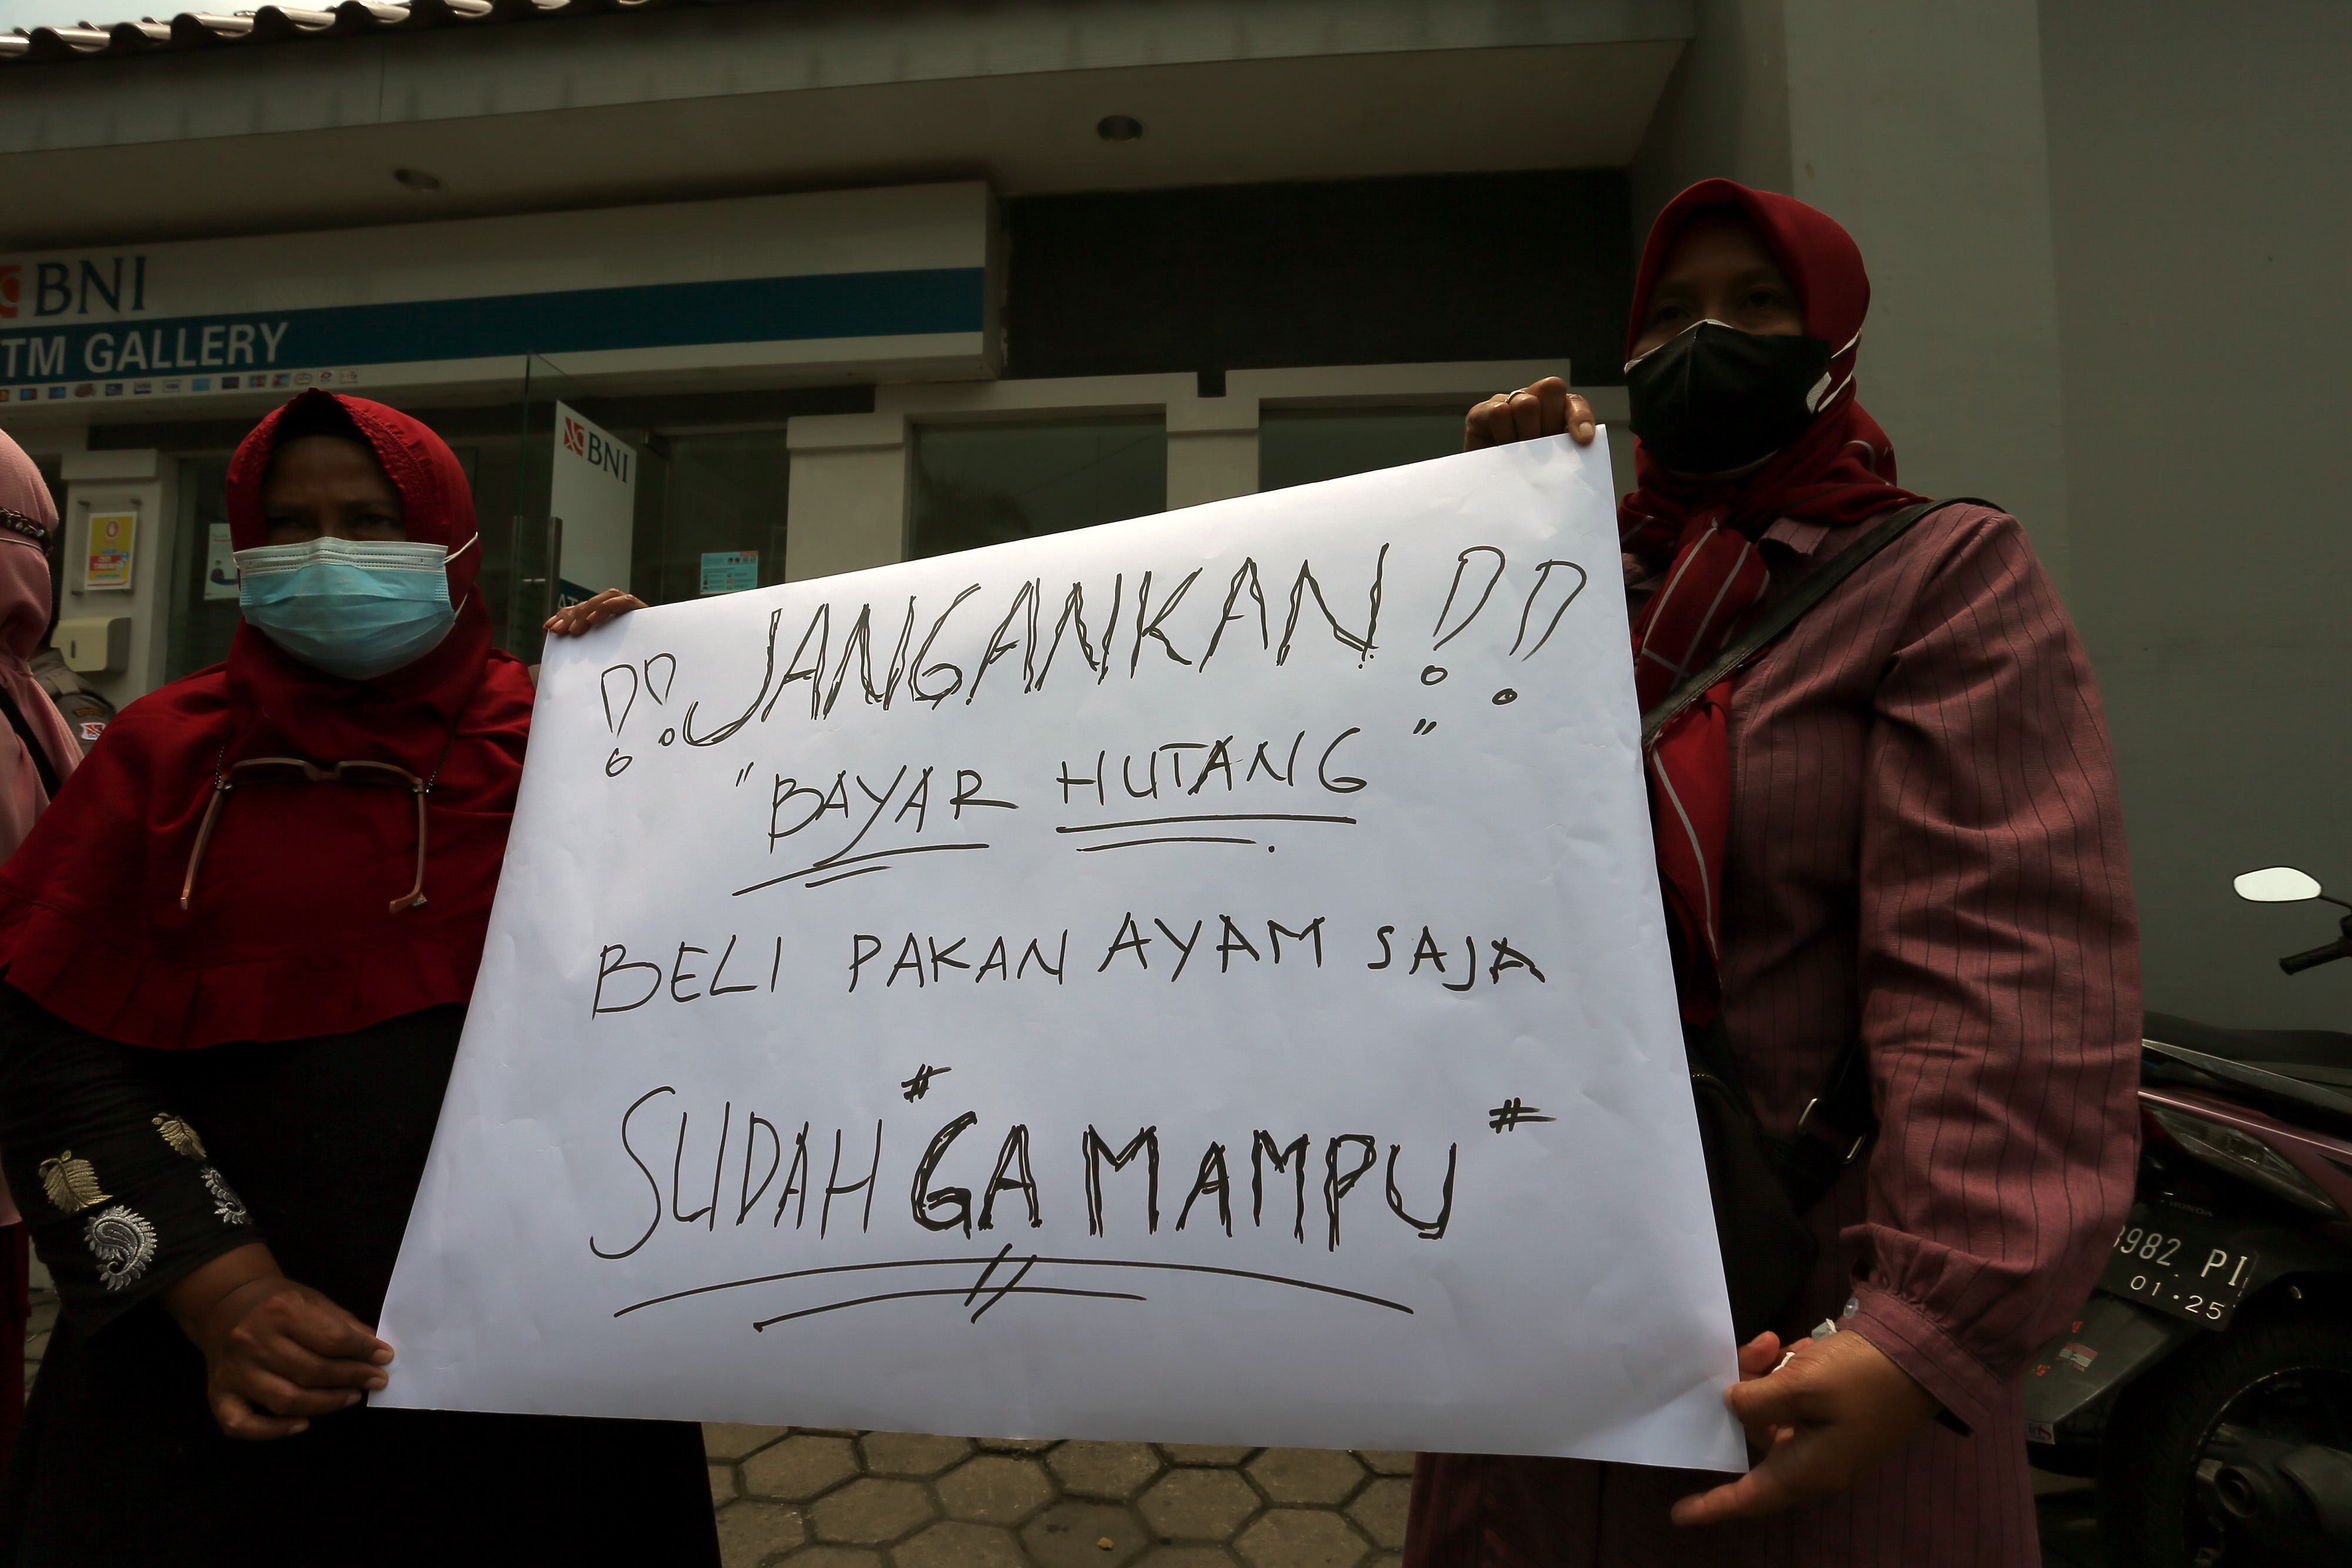 BNI
TM GALLERY
BNI
!! JANGANKAN !!
"BAYAR HUTANG"
BELI PAKAN AYAM SAJA
SUDAH #"GA MAMPU"#
HONDA
3982 PI
01·25